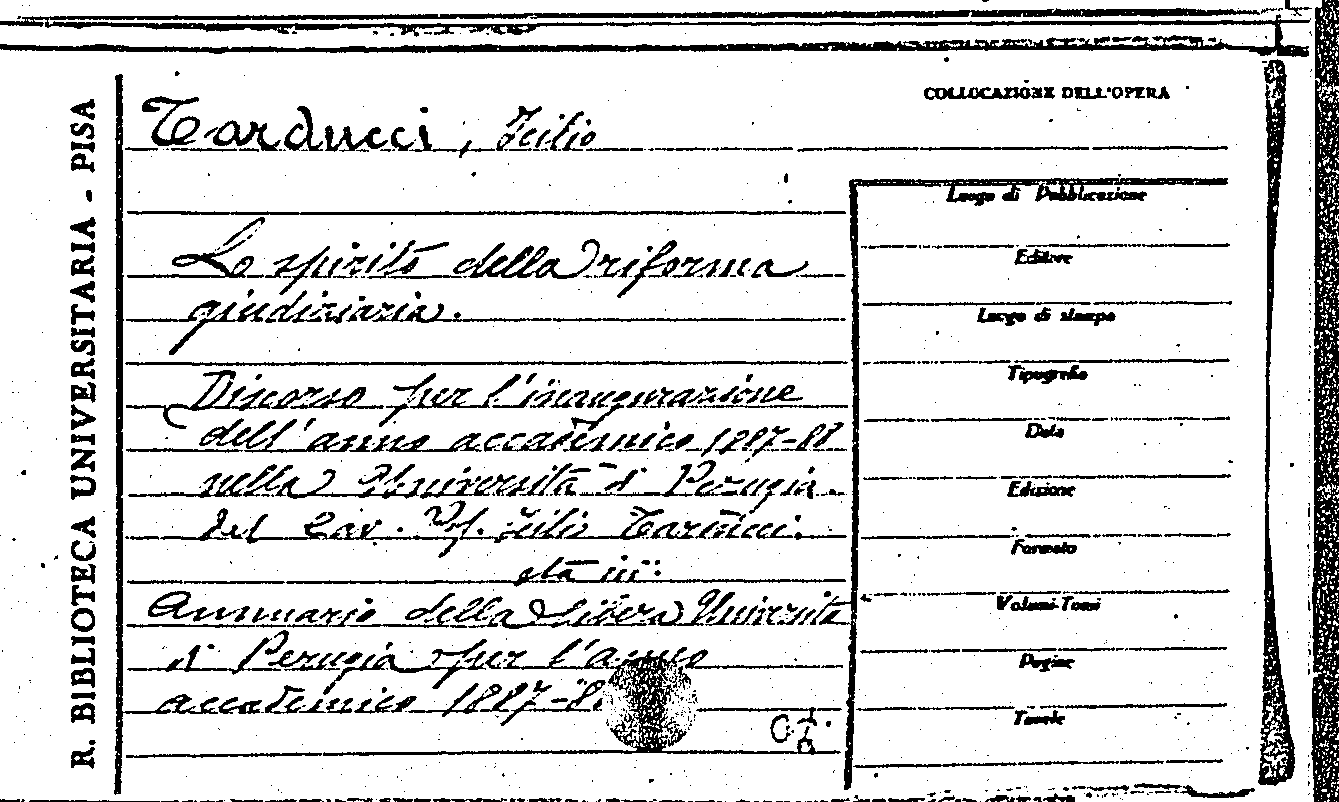 R. BIBLIOTECA UNIVERSITARIA - PISA
COLLOCAZIONE DELL'OPERA
Tarducci, Icilio
Lo spirito della riforma
giudiziaria.
Discorso per l'inaugurazione
dell'anno accademico 1887-88
nella Università di Perugia.
del Cav. Prof. Icilio Tarducci.
sta in:
Annuario della Libera Università
di Perugia per l'anno
accademico 1887-8
Luogo di Pubblicazione
Editore
Luogo di stampa
Tipografia
Data
Edizione
Formato
Volumi-Tomi
Pagine
Tavole